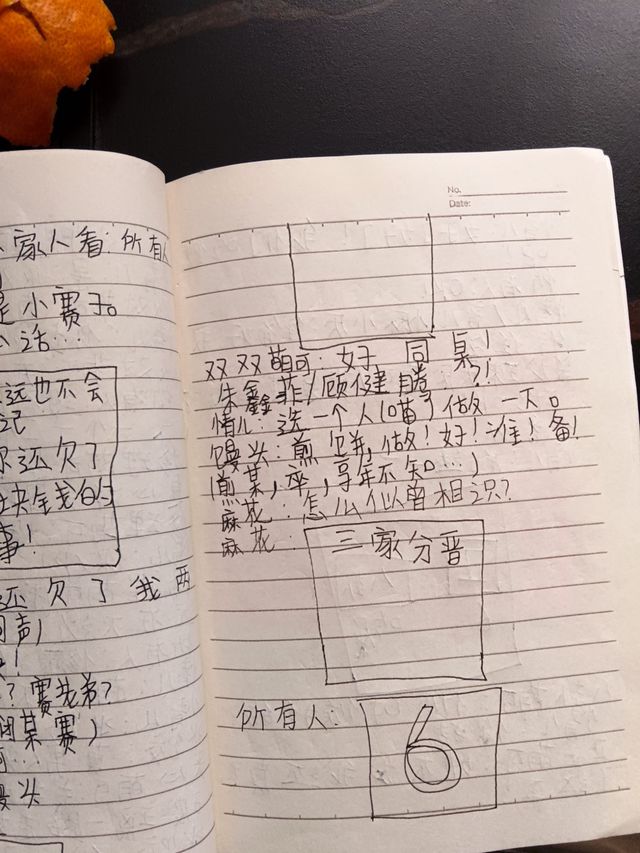 家人看：所有人
是小赛子。
话…
远也不会
记
你还欠了
块金钱的
事！
还欠了我两
同声）
！
？赛我弟？
某赛）
…
馒头
No.
Date:
双双萌可：好同桌！
朱鑫菲/顾健腾?!
情儿：选一个人(喵)做一下。
馒头：煎饼，做！好！准！备！
(煎某，卒，享年不知…)
麻花：怎么似曾相识？
麻花：
三家分晋
所有人：
6